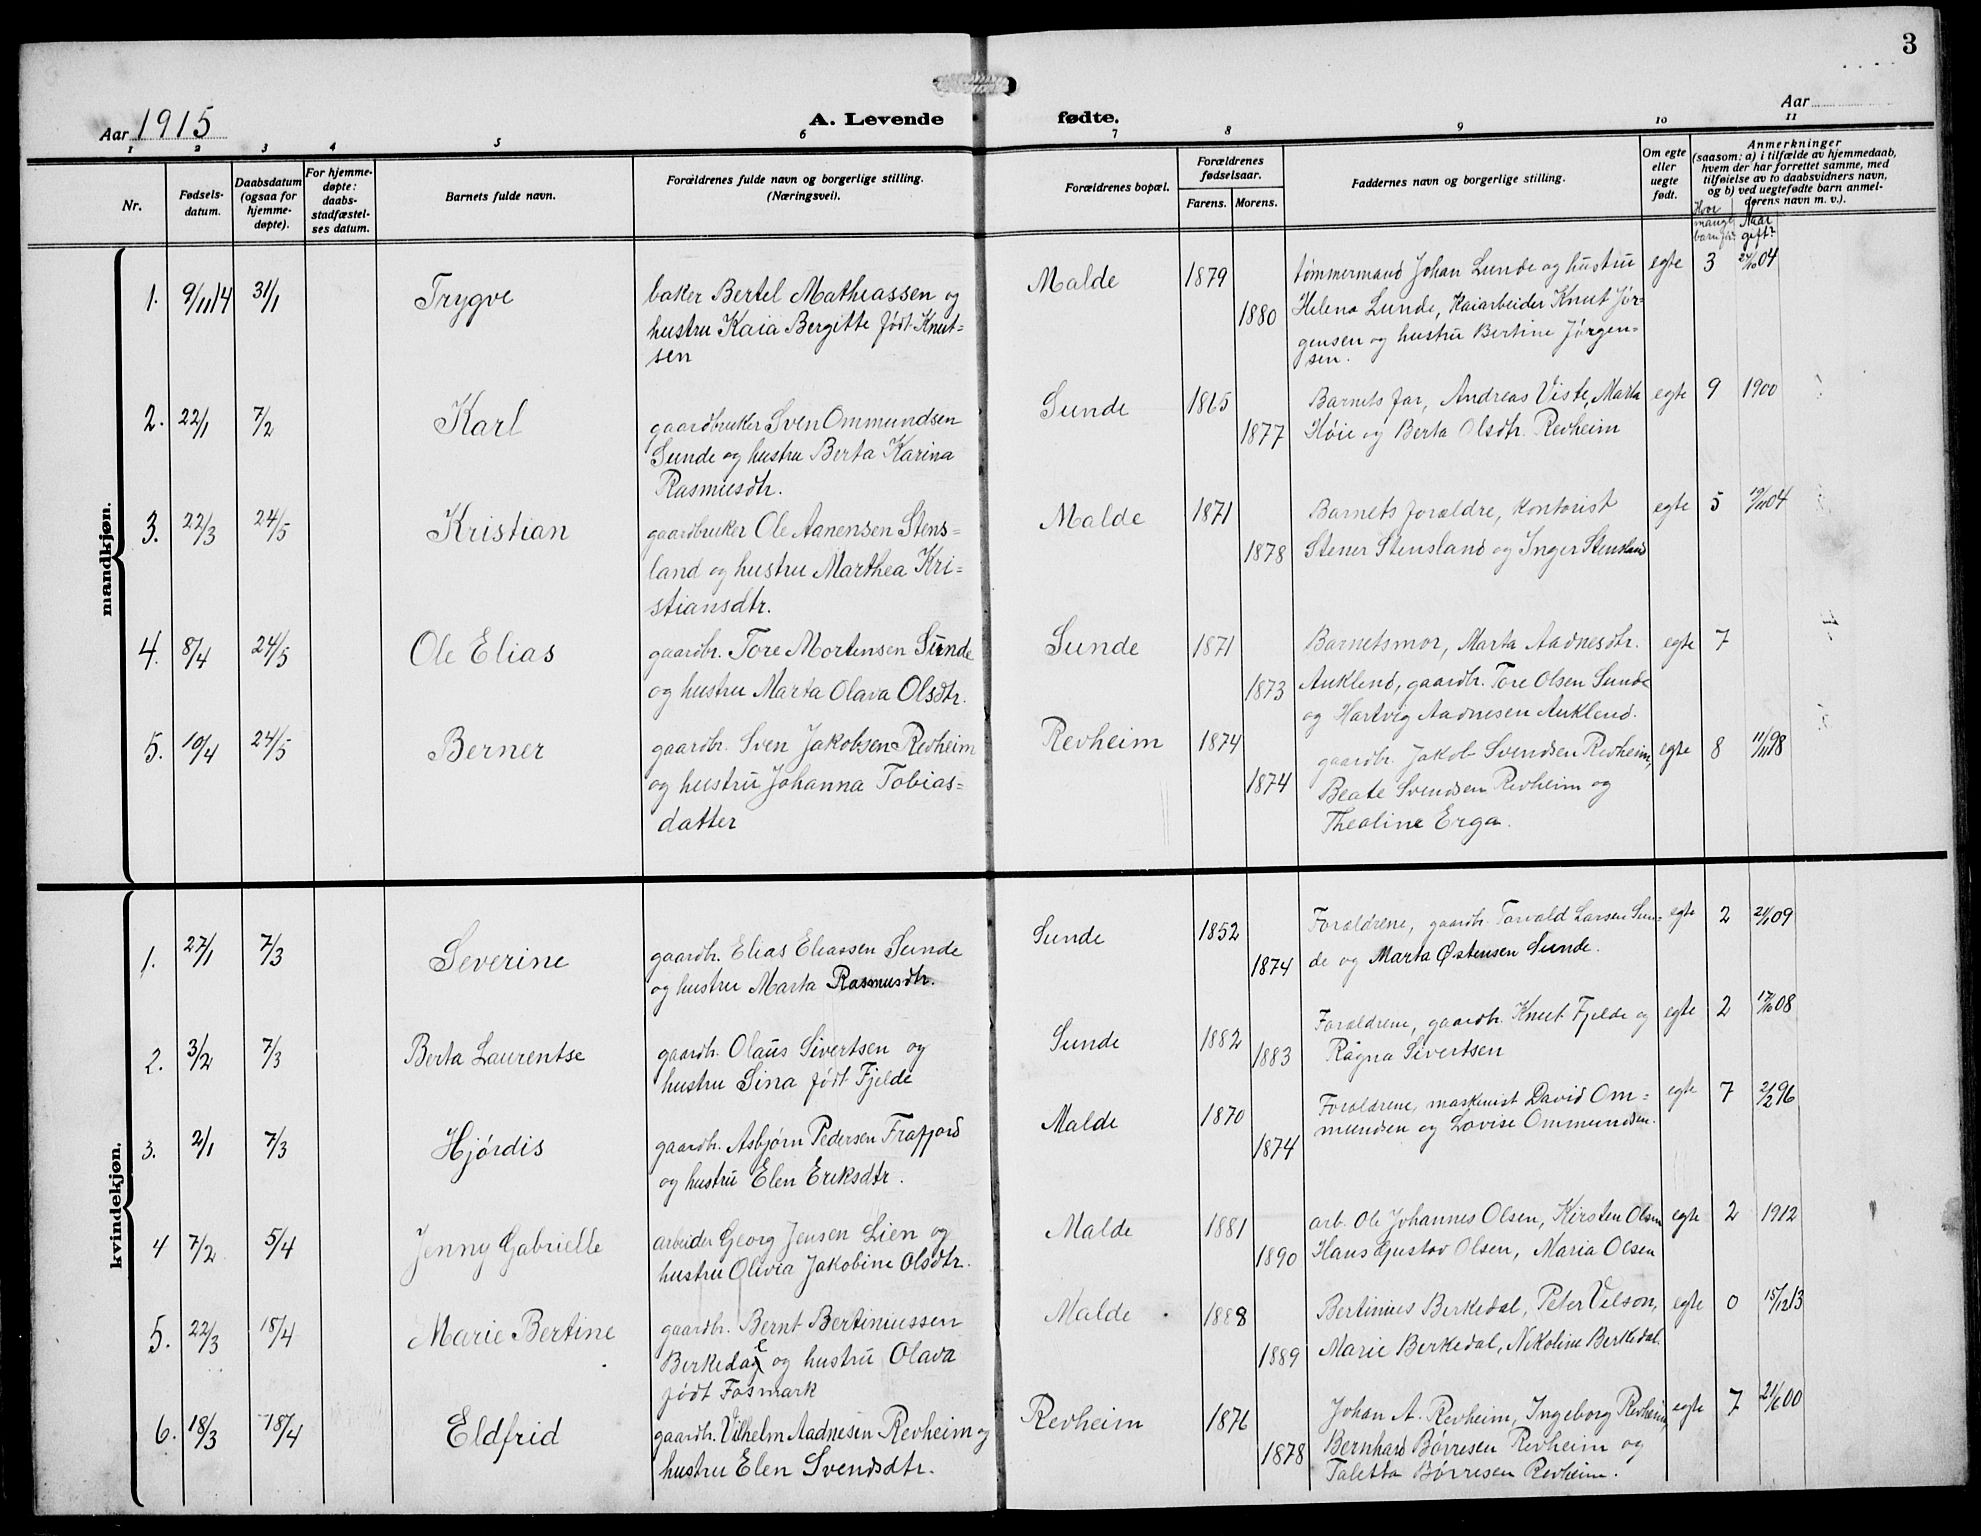 3
Aar 1915
A. Levende fødte.
Aar
1 2 3 4 5 6 7 8 9 10 11
Nr.
Fødsels-
datum.
Daabsdatum
(ogsaa for
hjemme-
døpte).
For hjemme-
døpte:
daabs-
stadfæstel-
ses datum.
Barnets fulde navn.
Forældrenes fulde navn og borgerlige stilling.
(Næringsvei).
Forældrenes bopæl.
Forældrenes
fødselsaar.
Farens. Morens.
Faddernes navn og borgerlige stilling.
Om egte
eller
uegte
født.
Anmerkninger
(saasom: a) i tilfælde av hjemmedaab,
hvem der har forrettet samme, med
tilføielse av to daabsvidners navn,
og b) ved uegtefødte barn anmel-
derens navn m. v.).
Hvor
mange
barn før?
Naar
gift?
mandkjøn.
1. 9/11 14 31/1 Trygve
baker Bertel Mathiassen og
hustru Kaia Bergitte født Knut-
sen
Malde 1879 1880
tømmermand Johan Lunde og hustru
Helena Lunde, Kaiarbeider Knut Jør-
gensen og hustru Bertine Jørgen-
sen.
egte 3 24/10 04
2. 22/1 7/2 Karl
gaardbruker Sven Ommundsen
Sunde og hustru Berta Karina
Rasmusdtr.
Sunde 1865 1877
Barnets far, Andreas Viste, Marta
Høie og Berta Olsdtr. Revheim
egte 9 1900
3. 22/3 24/5 Kristian
gaardbruker Ole Aanensen Stens-
land og hustru Marthea Kri-
stiansdtr.
Malde 1871 1878
Barnets forældre, kontorist
Stener Stensland og Inger Stensland
egte 5 04
4. 8/4 24/5 Ole Elias
gaardbr. Tore Mortensen Sunde
og hustru Marta Olava Olsdtr.
Sunde 1871 1873
Barnetsmor, Marta Aadnesdtr.
Auklend, gaardbr. Tore Olsen Sunde
og Hartvig Aadnesen Auklend.
egte 7
5. 10/4 24/5 Berner
gaardbr. Sven Jakobsen Revheim
og hustru Johanna Tobias-
datter
Revheim 1874 1874
gaardbr. Jakob Svendsen Revheim,
Beate Svendsen Revheim og
Theoline Erga.
egte 8 11/11 98
kvindekjøn.
1. 27/1 7/3 Severine
gaardbr. Elias Eliassen Sunde
og hustru Marta Rasmusdtr.
Sunde 1852 1874
Forældrene, gaardb. Torvald Larsen Sun-
de og Marta Østensen Sunde.
egte 2 09
2. 3/2 7/3 Berta Laurentse
gaardb. Olaus Sivertsen og
hustru Sina født Fjelde
Sunde 1882 1883
Forældrene, gaardb. Knut Fjelde og
Ragna Sivertsen
egte 2 17/10 08
3. 2/1 7/3 Hjørdis
gaardb. Asbjørn Pedersen Frafjord
og hustru Elen Eriksdtr.
Malde 1870 1874
Forældrene, maskinist David Om-
mundsen og Lovise Ommundsen.
egte 7 2/2 96
4 7/2 5/4 Jenny Gabrielle
arbeider Georg Jensen Lien og
hustru Olivia Jakobine Olsdtr.
Malde 1881 1890
arb. Ole Johannes Olsen, Kirsten Olsen
Hans Gustav Olsen, Maria Olsen
egte 2 1912
5. 22/3 18/4 Marie Bertine
gaardbr. Bernt Bertiniussen
Berkedal og hustru Olava
født Fosmark
Malde 1888 1889
Bertinius Berkedal, Peter Vilson,
Marie Berkedal, Nikoline Berkedal.
egte 0 15/12 13
6. 18/3 18/4 Eldfrid
gaardb. Vilhelm Aadnesen Revheim og
hustru Elen Svendsdtr.
Revheim 1876 1878
Johan A. Revheim, Ingeborg Revheim,
Bernhard Børresen Revheim og
Taletta Børresen Revheim.
egte 7 21/6 00